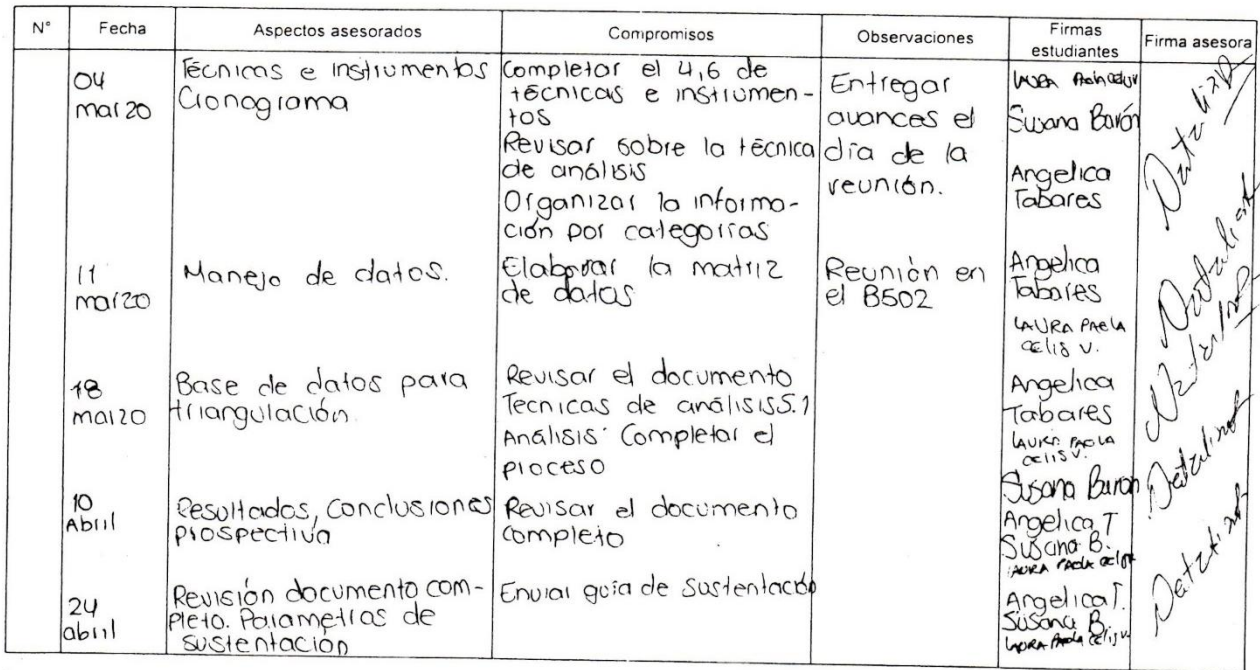 N° Fecha Aspectos asesorados Compromisos Observaciones Firmas estudiantes Firma asesora
04
marzo
Técnicas e instrumentos
Cronograma
Completar el 4,6 de
técnicas e instrumen-
tos
Revisar sobre la técnica
de análisis
Organizar la informa-
ción por categorías
Entregar
avances el
día de la
reunión.
Susana Barón
Angelica
Tabares
11
marzo
Manejo de datos.
Elaborar la matriz
de datos
Reunión en
el B502
Angelica
Tabares
LAURA PAOLA
CELIS V.
18
marzo
Base de datos para
triangulación.
Revisar el documento
Tecnicas de análisis 5.1
Análisis: Completar el
proceso
Angelica
Tabares
LAURA PAOLA
CELIS V.
Susana Baron
10
Abril
Resultados, conclusiones
prospectiva
Revisar el documento
completo
Angelica T
Susana B.
LAURA PAOLA
24
abril
Revisión documento com-
pleto. Parametros de
sustentación
Enviar guia de sustentación
Angelica T.
Susana B.
LAURA PAOLA CELIS V.